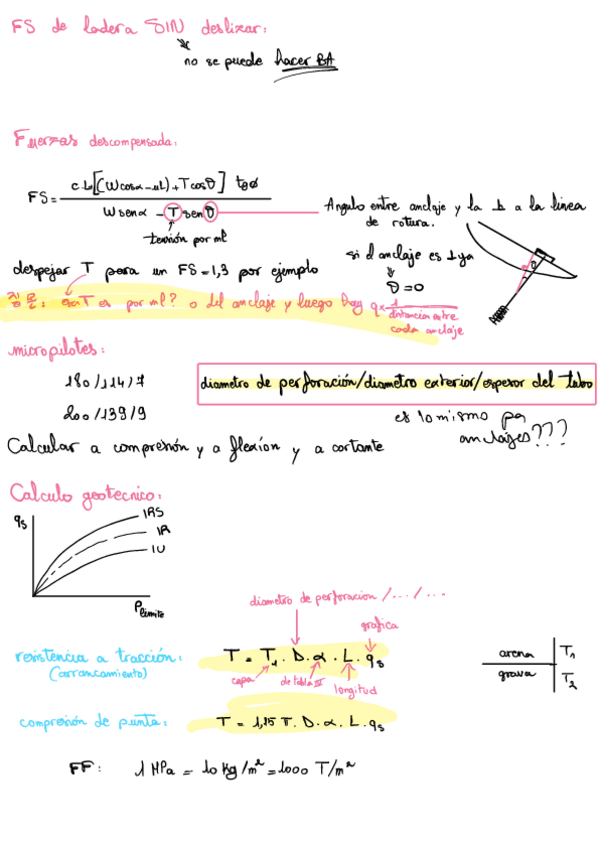 FS de ladera SIN deslizar:
no se puede hacer BA
Fuerzas descompensada:
FS = c·L·[(Wcosα-uL)+Tcosθ] tgø / Wsenα - Tsenθ
Angulo entre anclaje y la ⊥ a la linea
de rotura.
tensión por ml
si el anclaje es ⊥ ya
θ = 0
θ
despejar T para un FS=1,3 por ejemplo
질문: T es por ml? o del anclaje y luego hay q× 1 / distancia entre
cada anclaje
micropilotes:
180/114/7
diametro de perforación/diametro exterior/espesor del tubo
200/139/9
es lo mismo pa
anclajes???
Calcular a compresión y a flexión y a cortante
Calculo geotecnico:
qs
IRS
IR
IU
Plimite
diametro de perforacion /.../...
grafica
resistencia a tracción:
(arrancamiento)
T = T1 . D . α . L . qs
capa
de tabla III
longitud
arena T1
grava T2
compresión de punta:
T = 1,15 T . D . α . L . qs
FF: 1 MPa = 10 kg/m² = 1000 T/m²